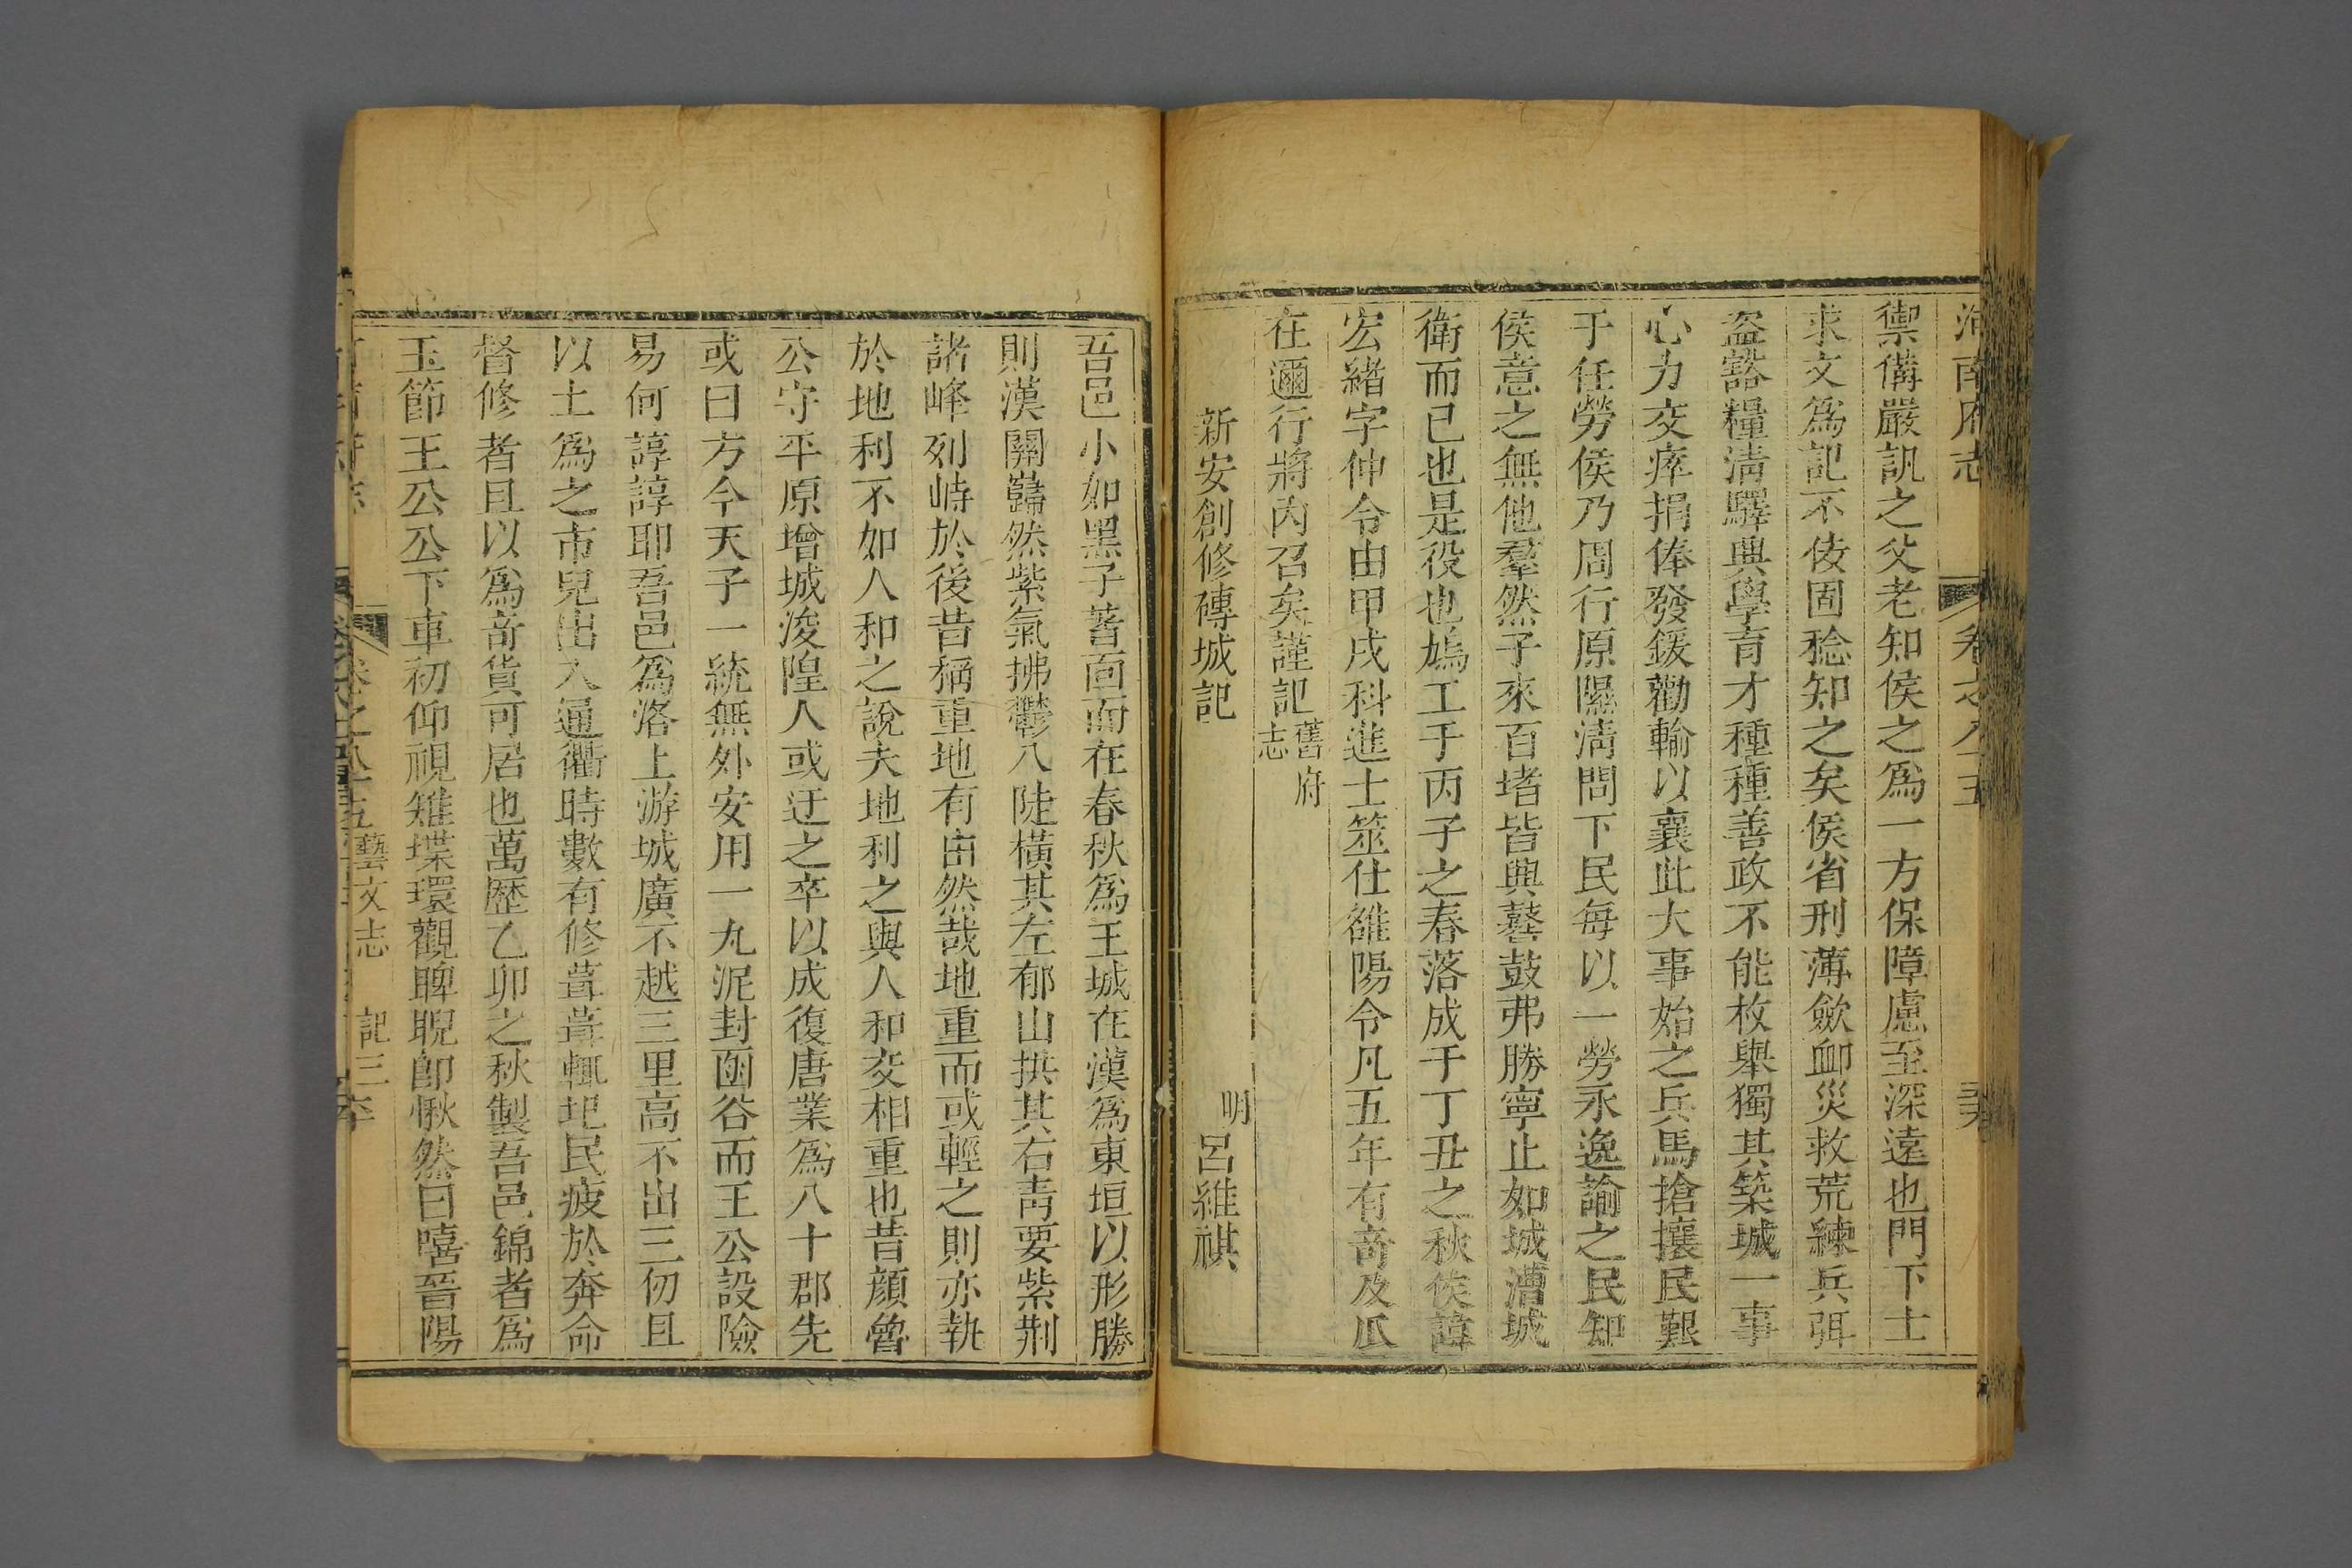 河南府志
卷之八十五
禦備嚴訊之父老知侯之爲一方保障慮至深遠也門下士
求文爲記不侫固稔知之矣侯省刑薄斂卹災救荒練兵弭
盜豁糧淸驛興學育才種種善政不能枚舉獨其築城一事
心力交瘁捐俸發鍰勸輸以襄此大事始之兵馬搶攘民艱
于任勞侯乃周行原隰淸問下民每以一勞永逸諭之民知
侯意之無他羣然子來百堵皆興鼛鼓弗勝寧止如城漕城
衛而已也是役也鳩工于丙子之春落成于丁丑之秋侯諱
宏緒字仲令由甲戌科進士筮仕雒陽令凡五年有竒及瓜
在邇行將內召矣謹記舊府志
新安創修磚城記
明
呂維祺
吾邑小如黑子著面而在春秋爲王城在漢爲東垣以形勝
則漢關巋然紫氣拂鬱八陡橫其左郁山拱其右靑要紫荆
諸峰列峙於後昔稱重地有由然哉地重而或輕之則亦執
於地利不如人和之說夫地利之與人和交相重也昔顏魯
公守平原增城浚隍人或迂之卒以成復唐業爲八十郡先
或曰方今天子一統無外安用一丸泥封函谷而王公設險
易何諄諄耶吾邑爲洛上游城廣不越三里高不出三仞且
以土爲之市兒出入通衢時數有修葺葺輒圮民疲於奔命
督修者且以爲竒貨可居也萬歷乙卯之秋製吾邑錦者爲
玉節王公公下車初仰視雉堞環觀睥睨卽愀然曰嘻晉陽
卷之八十五
藝文志
記三